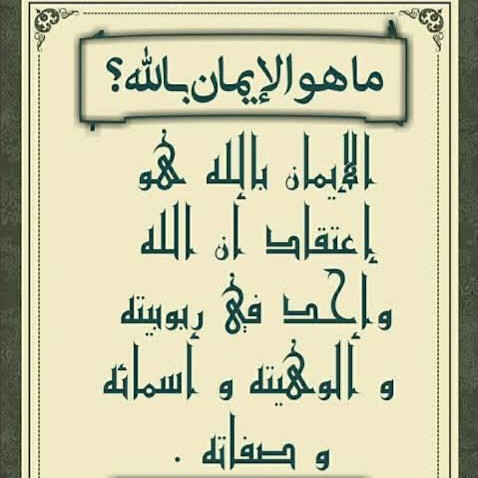 ما هو الإيمان بالله؟
الإيمان بالله هو
إعتقاد أن الله
واحد في ربوبيته
و ألوهيته و أسمائه
و صفاته .